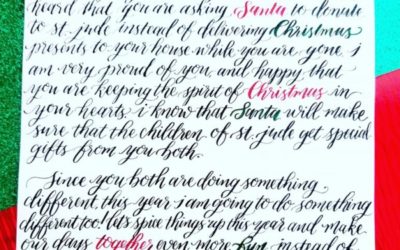 heard that you are asking Santa to donate
to st. jude instead of delivering Christmas
presents to your house while you are gone. i
am very proud of you and happy that
you are keeping the spirit of Christmas in
your hearts. i know that Santa will make
sure that the children of st. jude get special
gifts from you both.
Since you both are doing something
different this year i am going to do something
different too! let's spice things up this year and make
our days together even more fun instead of